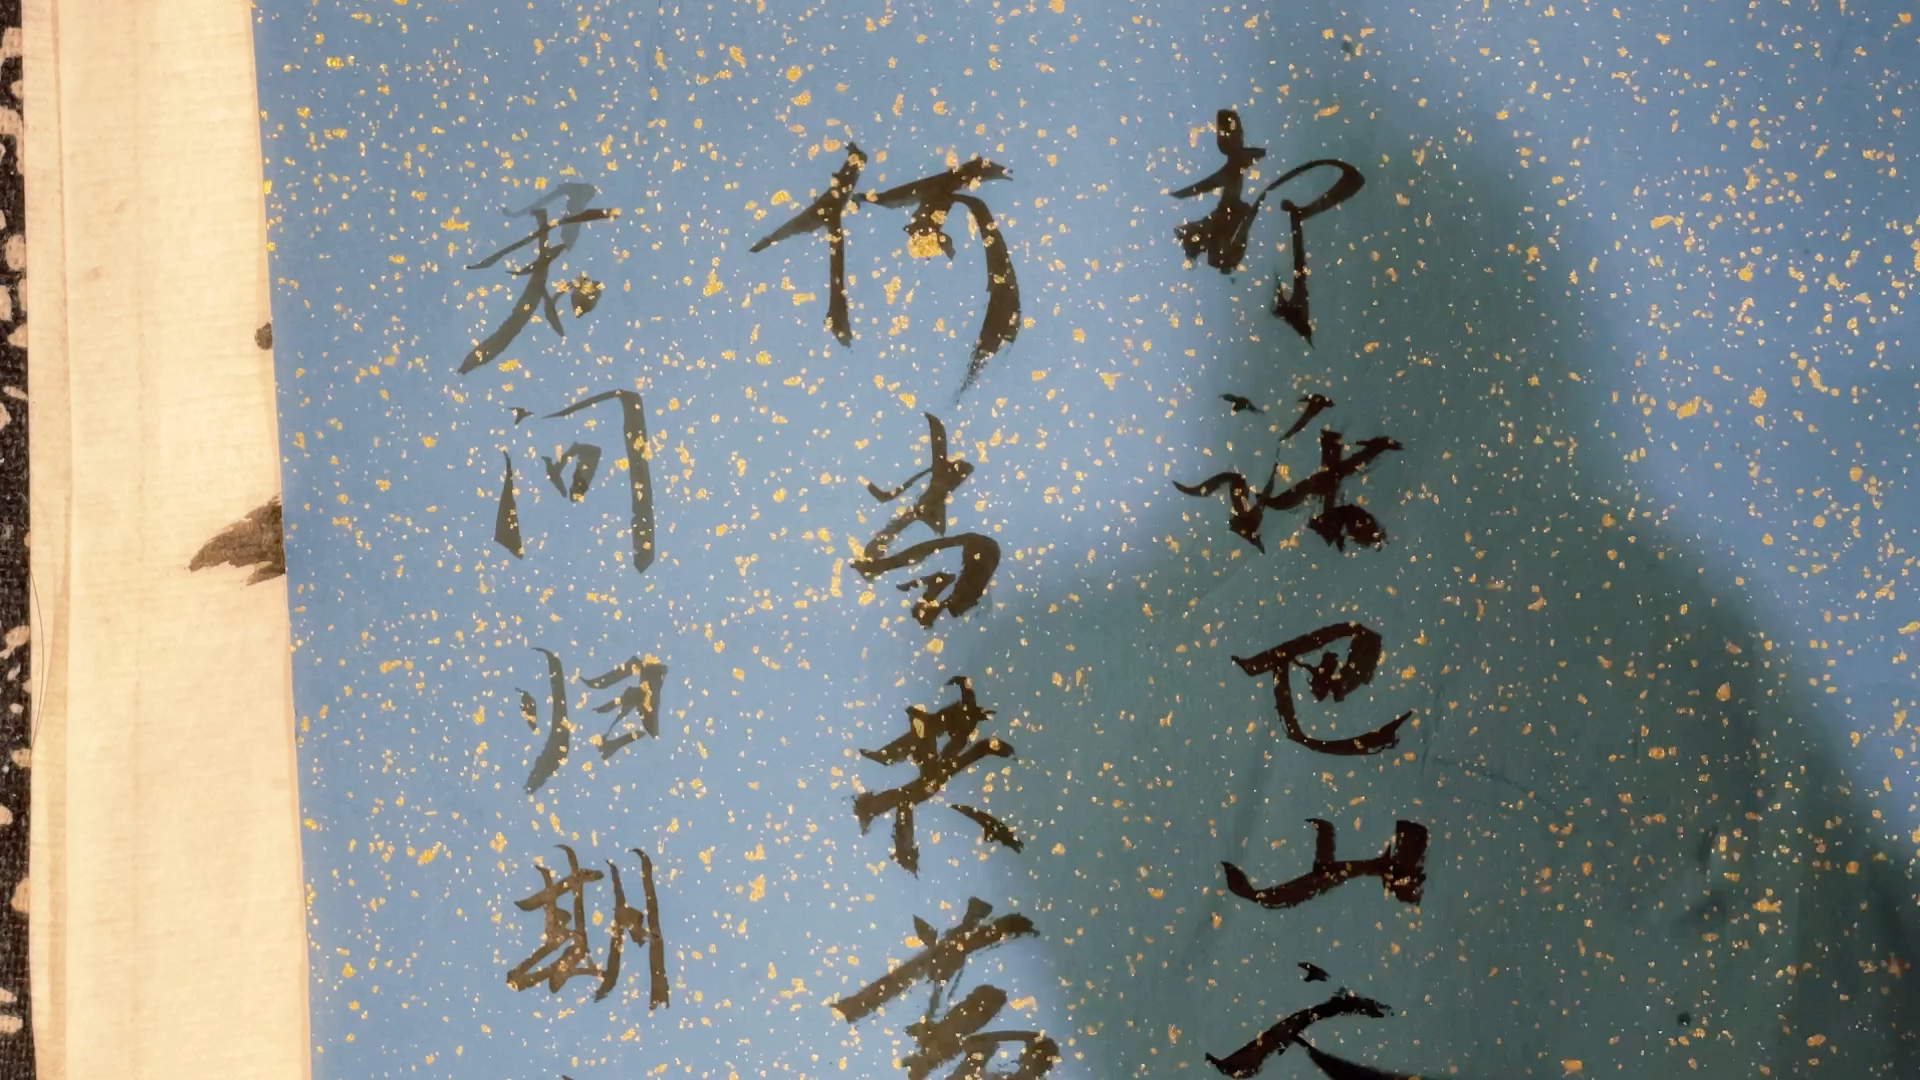 君问归期
何当共
却话巴山